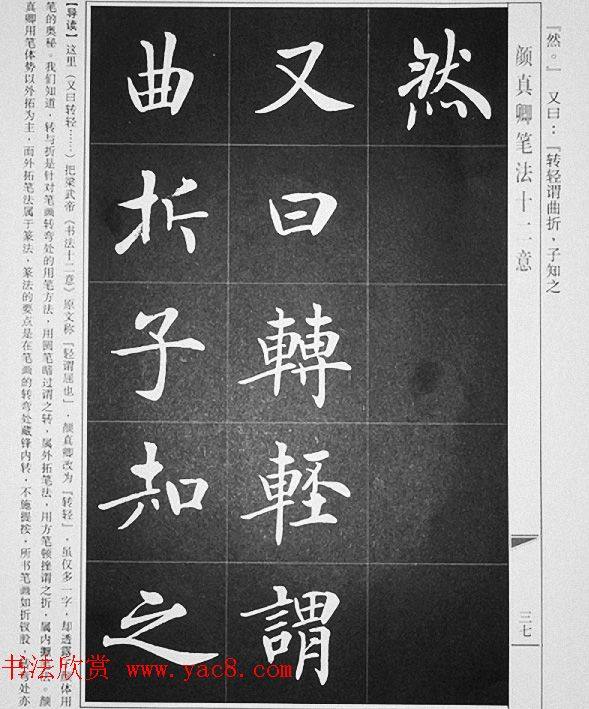 『然。』　又曰：『转轻谓曲折，子知之
颜真卿笔法十二意
三七
然
又曰轉軽謂
曲折子知之
【导读】这里（又曰转轻……）把梁武帝《书法十二意》原文称『轻谓屈也』，颜真卿改为『转轻』，虽仅多一字，却透露 体用
笔的奥秘。我们知道，转与折是针对笔画转弯处的用笔方法，用圆笔暗过谓之转，属外拓笔法，用方笔顿挫谓之折，属内 法。颜
真卿用笔体势以外拓为主，而外拓笔法属于篆法，篆法的要点是在笔画的转弯处藏锋内转，不施提按，所书笔画如折钗股， 弯处亦
书法欣赏 www.yac8.com